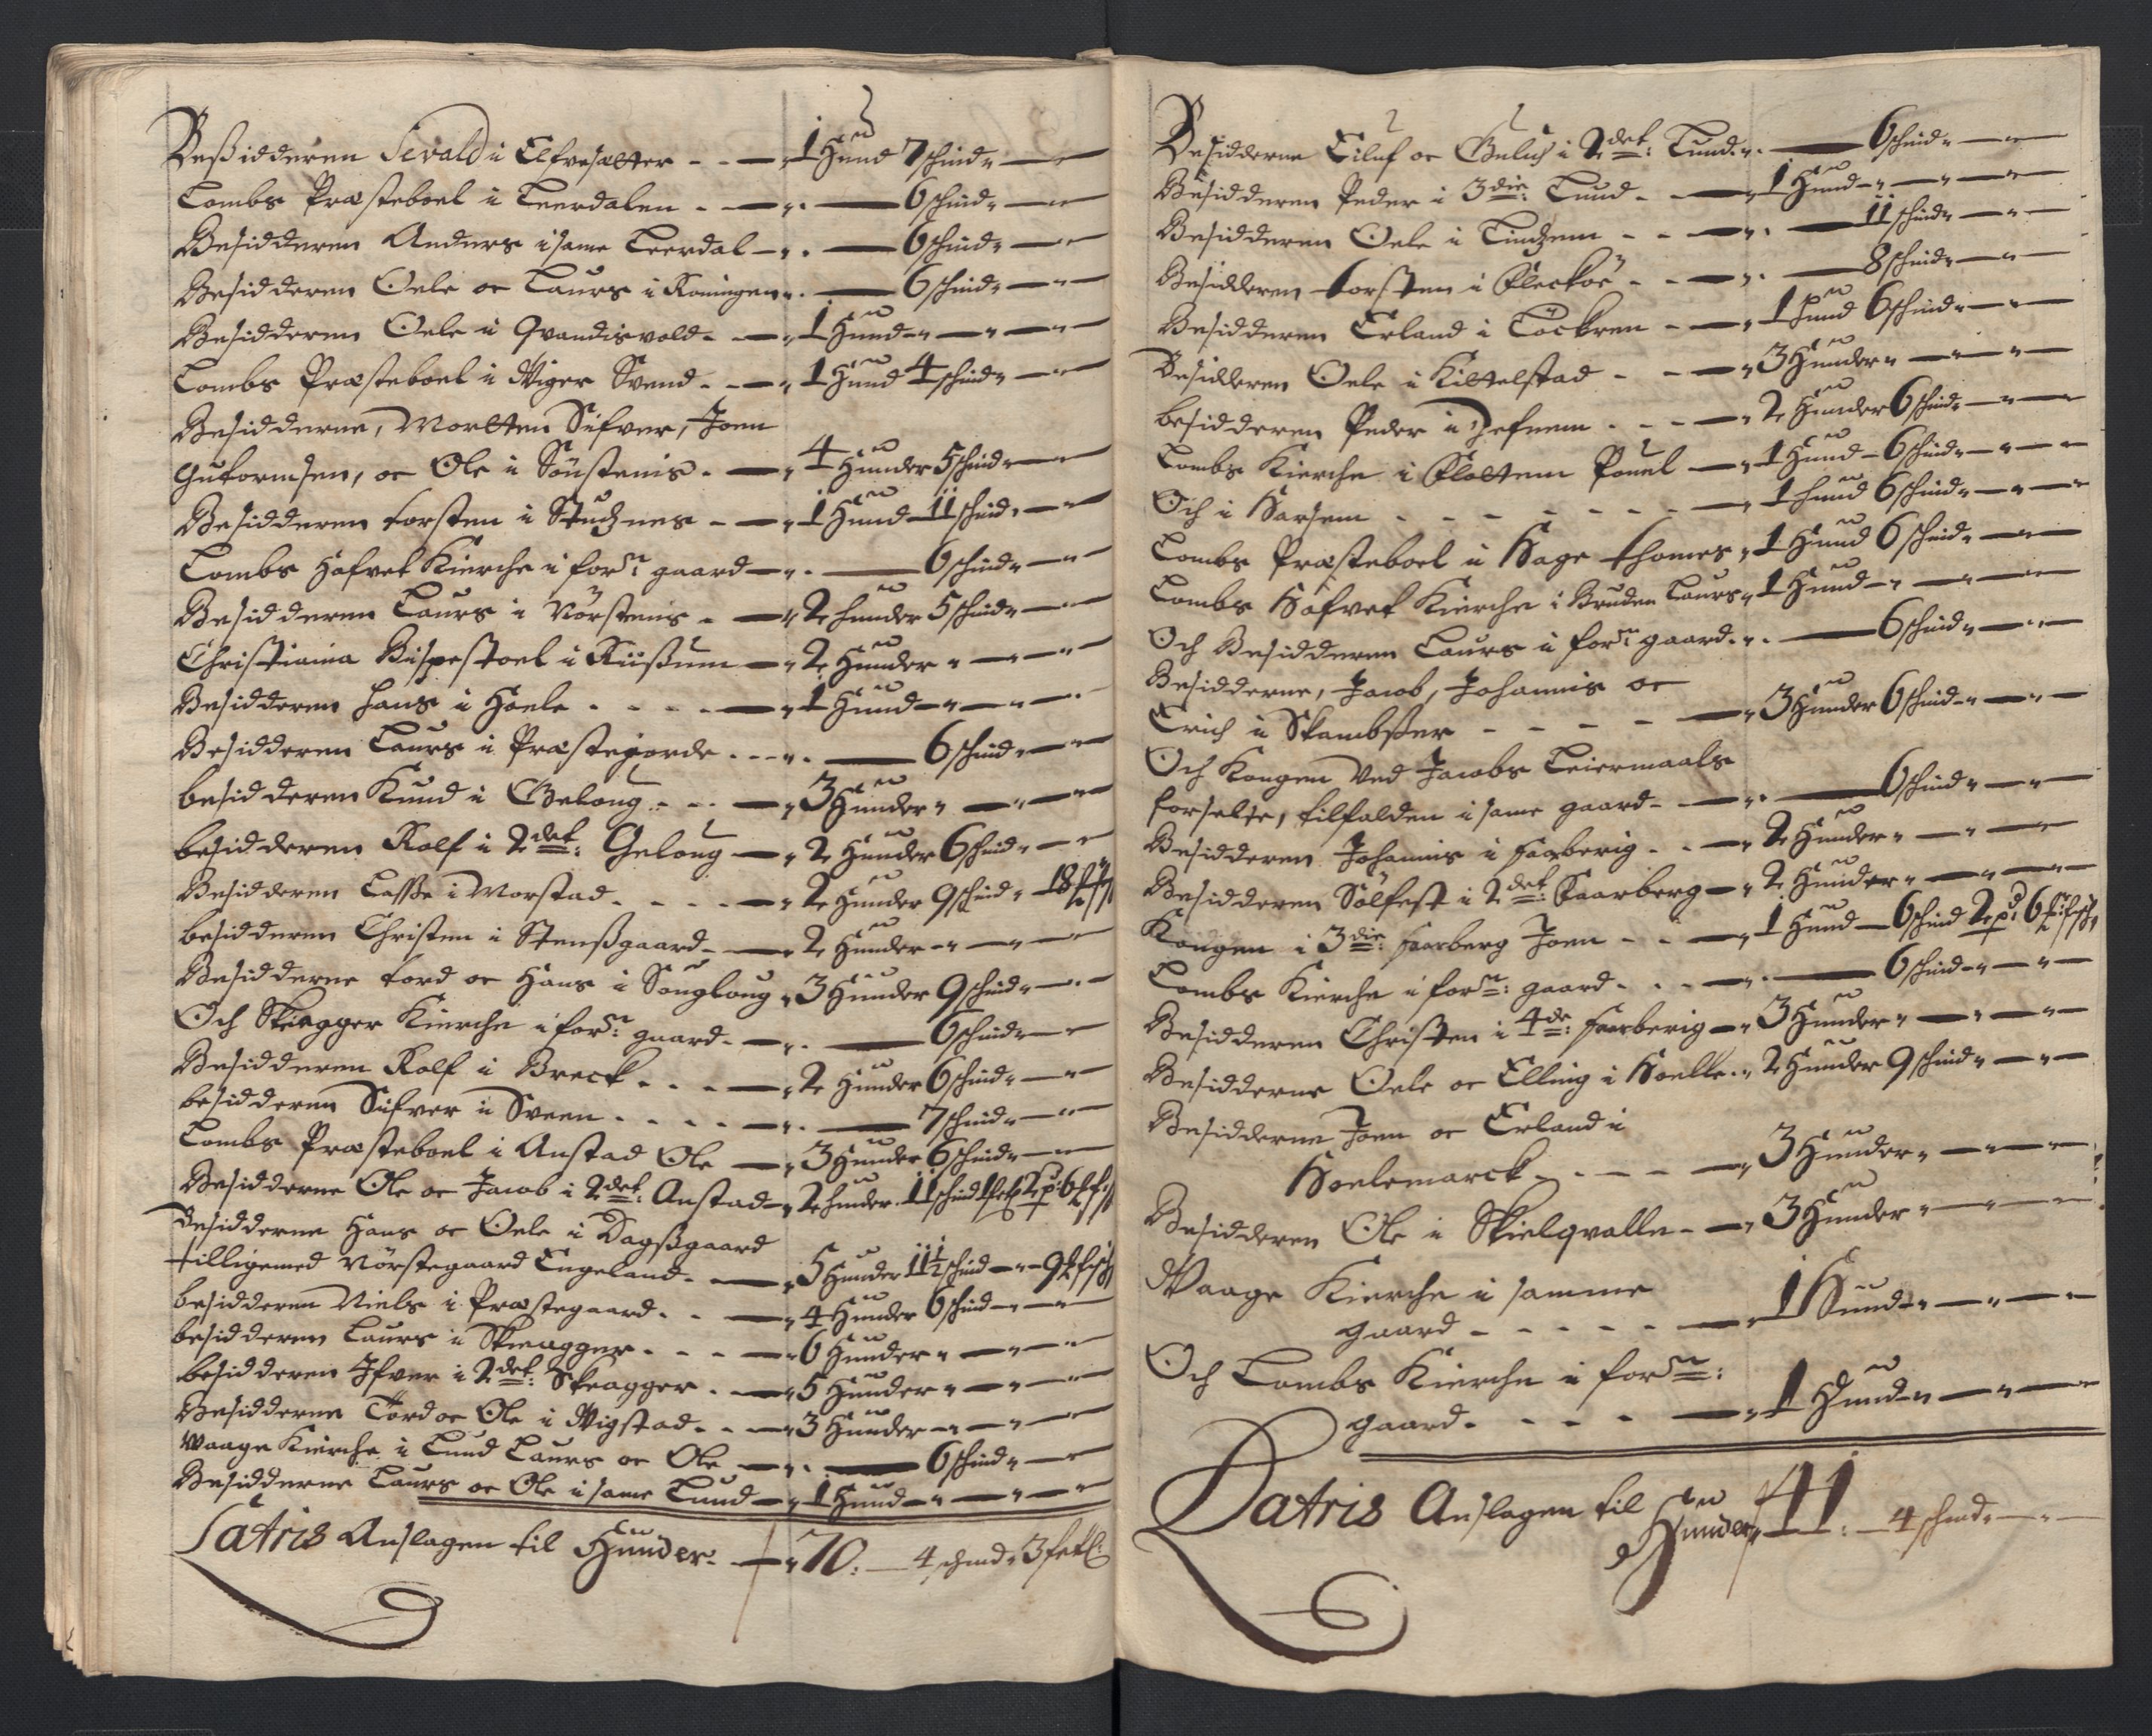 Beßidderen Sevald i Elfvesætter - - — „ 1 Hund 7 schind „ —
Lombs Præsteboel i Leerdalen - — „ . — 6 schind „ —
Besidderen Anders i same Leerdal — „ . — 6 schind „ —
Besidderen Oele oc Laurs i Roningen „ . — 6 schind „ —
Besidderen Oele i Qvandisvold - — „ 1 Hund - „ — „ —
Lombs Præsteboel i Wiger Svend - - — „ 1 Hund 4 schind „ —
Besidderne, Mortten Sifver, Joen
Gutormsen, oc Ole i Sönstenis - — „ 4 Hunder 5 schind „ —
Besidderen torsten i Studznes - — „ 1 Hund 11 schind „ —
Lombs Hofvet Kierche i forne: gaard — „ . — 6 schind „ —
Besidderen Laurs i Nörstenis - — „ 2 hunder 5 schind „ —
Christiania Bispestoel i Riißum — „ 2 Hunder „ — „ —
Besidderen Hans i Hoele - - - — „ 1 Hund - „ — „ —
Besidderen Laurs i Præstegiorde - - - „ . — 6 schind „ —
besidderen Knud i Gielong - - — „ 3 Hunder „ — „ —
besidderen Rolf i 2det: Gelong — „ 2 Hunder 6 schind „ —
Besidderen Lasse i Morstad - - - — „ 2 Hunder 9 schind „ 18
besidderen Christen i Stenßgaard - — „ 2 Hunder - „ — „ —
Besidderne tord oc Hans i Songlong „ 3 Hunder 9 schind „ —
Och Skeagger Kierche i forne: gaard - — „ . — 6 schind „ —
Besidderen Rolf i Breck - - - — „ 2 Hunder 6 schind „ —
besidderen Sifver i Sveen - - - - — „ . — 7 schind „ —
Lombs Præsteboel i Anstad Ole — „ 3 Hunder 6 schind „ —
Besidderne Ole oc Jacob i 2det: Anstad — „ 2 hunder 11 schind
Besidderne Hans oc Oele i Dagßgaard
tilligemed Nörstegaard Engeland - — „ 5 Hunder 11½ schind — „ —
besidderen Niels i Præstegaard - - — „ 4 Hunder 6 schind — „ —
besidderen Laurs i Skeagger - - - — „ 6 Hunder „ — „ —
besidderen Ifver i 2det: Skeagger - — „ 5 Hunder „ — „ —
Besidderne Tord oc Ole i Wigstad - - — „ 3 Hunder — „ — „ —
Waage Kierche i Lund Laurs oc Ole — „ . — 6 schind „ —
Besidderne Laurs oc Ole i same Lund — „ 1 Hund - „ — „ —
Latris Anslagen til Hunder - — „ 70: — 4 schind „ 3
Besidderne Eiluf oc i 2det: Lund „ . — 6 schind „ —
Besidderen Peder i 3die: Lund - — „ 1 Hund - „ — „ —
Besidderen Oele i - - — „ . — 11 schind „ —
Besidderen torsten i Fleckoe - - — „ . — 8 schind „ —
Besidderen Erland i Löckren - — „ 1 hund 6 schind „ —
Besidderen Oele i Kittelstad - - — „ 3 Hunder „ — „ —
besidderen Peder i - - — „ 2 Hunder 6 schind „ —
Lombs Kierche i Flottem Pouel — „ 1 Hund - 6 schind „ — „ —
Och i Harsem - - - - - - - — „ 1 hund 6 schind „ — „ —
Lombs Præsteboel i Hage thomes „ 1 Hund 6 schind „ —
Lombs Hofvet Kierche i Bruden Laurs „ 1 Hund - „ — „ —
Och Besidderen Laurs i forne: gaard - „ . — 6 schind „ —
Besidderne, Jacob, Johannis oc
Erich i Skambster - - - - — „ 3 Hunder 6 schind - „ —
Och Kongen ved Jacobs Leiermaals
forseelse, tilfalden i same gaard - — „ . — 6 schind „ —
Besidderen Johannis i Faaberig - - — „ 2 Hunder „ — „ —
Besidderen Sölfest i 2det: Faarberg — „ 2 Hunder „ — „ —
Kongen i 3die: Faarberg Joen - - — „ 1 Hund — 6 schind
Lombs Kierche i forne: gaard - - - — „ . — 6 schind - „ —
Besidderen Christen i 4de: Faarberig — „ 3 Hunder „ — „ —
Besidderne Oele oc Elling i Hoelle - „ 2 Hunder 9 schind „ — „ —
Besidderne Joen oc Erland i
Hoelemarck - - - - — „ 3 Hunder „ — „ —
Besidderen Ole i Skielqvalle - — „ 3 Hunder „ — „ —
Waage Kierche i samme
gaard - - - - - — „ 1 Hund - „ — „ —
Och Lombs Kierche i forne:
gaard - - - - — „ 1 Hund - „ — „ —
Latris Anslagen til
Hunder „ 41: — 4 schind „ — „ —